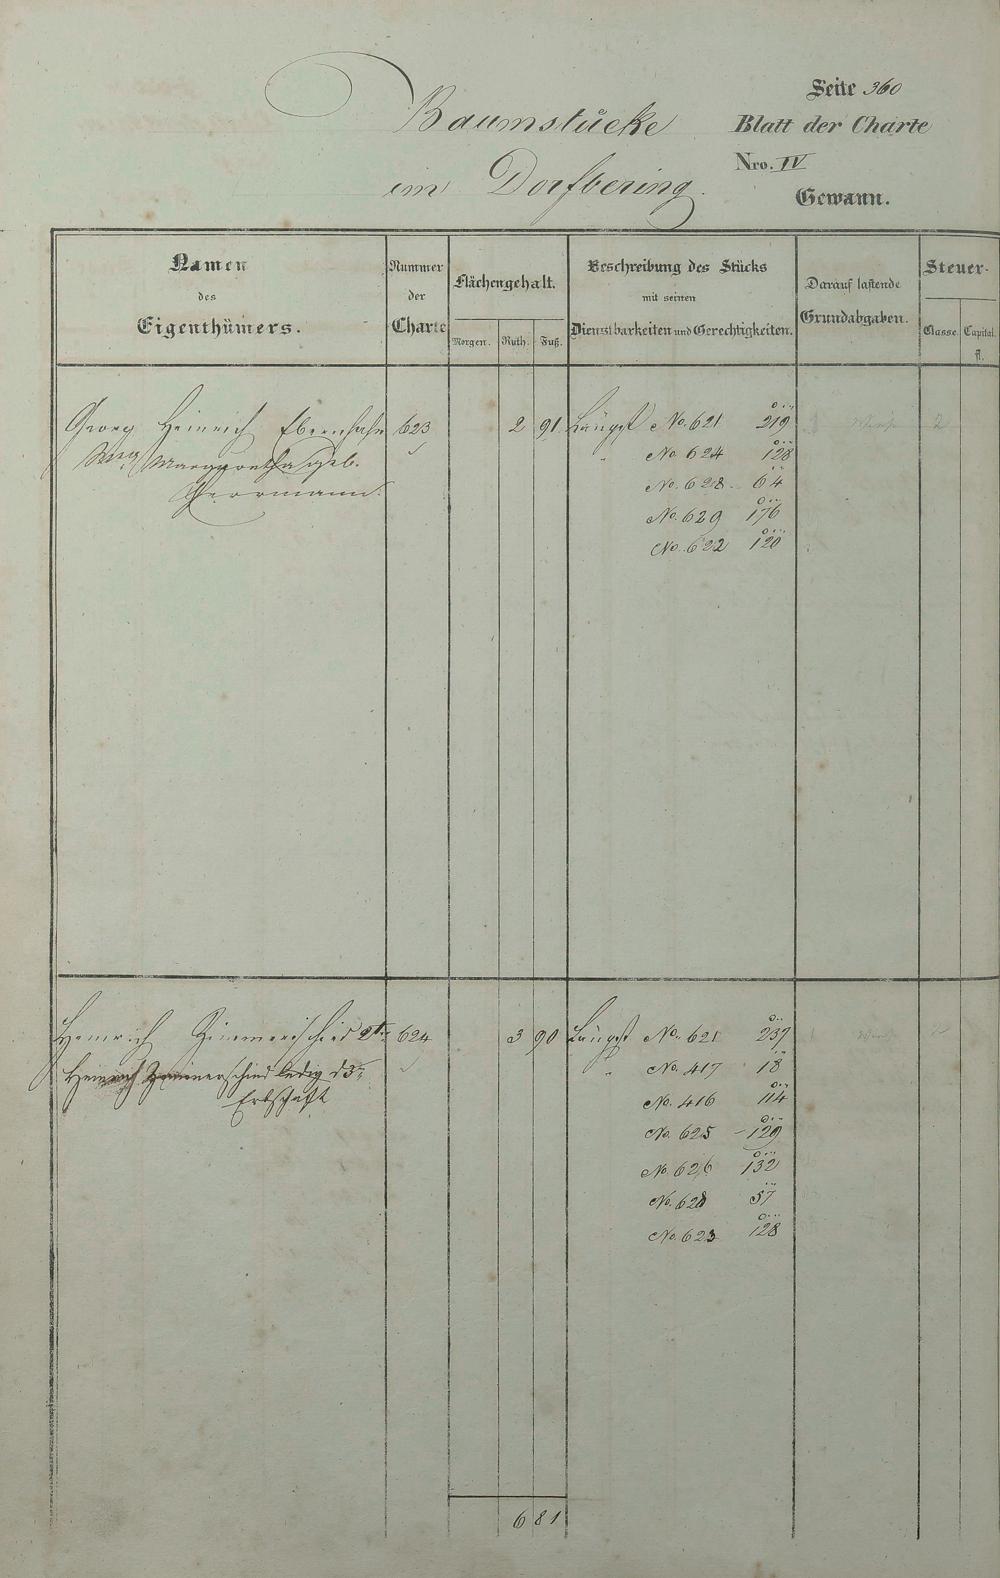 Seite 360
Baumstücke
Blatt der Charte
Nro. IV
im Dorfbering.
Gewann.
Namen des Eigenthümers.
Nummer der Charte
Flächengehalt.
Morgen. Ruth. Fuß.
Beschreibung des Stücks mit seinen Dienstbarkeiten und Gerechtigkeiten.
Darauf lastende Grundabgaben.
Steuer-
Classe. Capital. fl.
Georg Heinrich Ebernhahn 623 2 91 Längst No. 621 219
Margaretha geb. " No. 624 128
Herrmann. No. 628. 64
No. 629 176
No. 622 120
Heinrich Zimmerschied 2ter 624 3 90 Längst No. 621 237
Heinrich Zimmerschied ledig d 3n " No. 417 18
Erbschaft No. 416 114
No. 625 - 129
No. 626 132
No. 628 57
No. 623 128
6 81